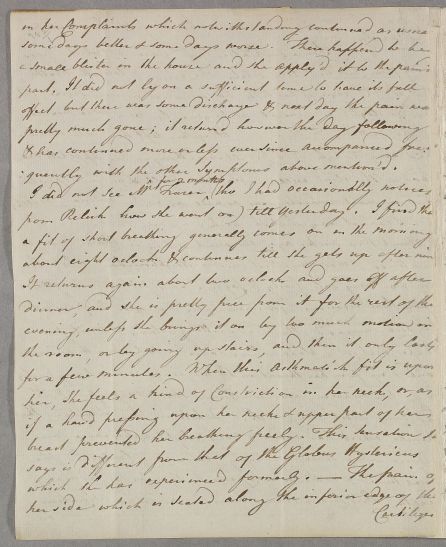 in her Complaints which notwithstanding continued as usual
some days better & some days worse. There happend to be
a small blister in the house and she applyd it to the pain'd
part. It did not ly on a sufficient time to have its full
effect but there was some discharge & next day the pain was
pretty much gone; it returnd however the day following
& has continued more or less ever since accompanied fre-
quently with the other Symptoms above mention'd.
for 2 months
I did not see Mrs Frazer (tho I had occasionally notices
from Relick how she went on) till yesterday. I find that
a fit of short breathing generally comes on in the morning
about eight oclock & continues till she gets up after nine
It returns again about two oclock and goes off after
dinner, and she is pretty free from it for the rest of the
evening, unless she brings it on by too much motion in
the room, or by going up stairs, and then it only lasts
for a few minutes. When this Asthmatick fit is upon
her, she feels a kind of Constriction in her neck, or, as
if a hand pressing upon her neck & upper part of her
breast prevented her breathing freely. This sensation she
says is different from that of the Globus Hystericus
which she has experienced formerly. — The pain of
her side which is seated along the inferior edge of the
Cartilages